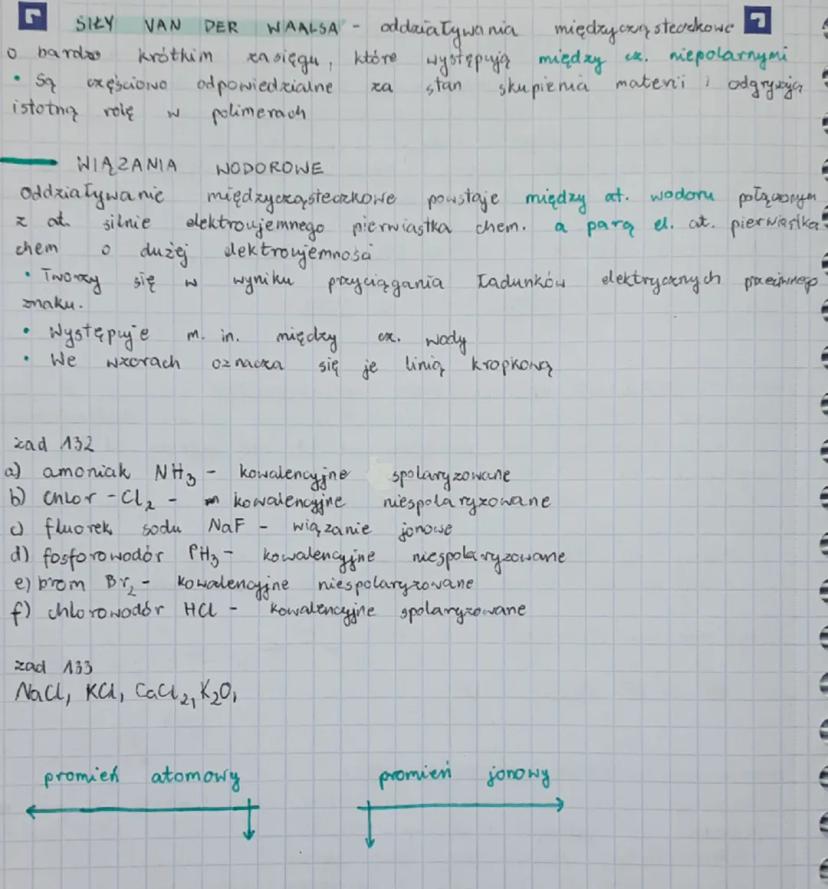 SIŁY VAN DER WAALSA - oddziaływania międzycząsteczkowe
o bardzo krótkim zasięgu, które występują między cz. niepolarnymi
• Są częściowo odpowiedzialne za stan skupienia materii i odgrywają
istotną rolę w polimerach
WIĄZANIA WODOROWE
Oddziaływanie międzycząsteczkowe powstaje między at. wodoru połączonym
z at. silnie elektroujemnego pierwiastka chem. a parą el. at. pierwiastka
chem o dużej elektroujemności
• Tworzy się w wyniku przyciągania ładunków elektrycznych przeciwnego
znaku.
• Występuje m. in. między cz. wody
• We wzorach oznacza się je linią kropkową
zad 132
a) amoniak NH3 - kowalencyjne spolaryzowane
b) chlor - Cl2 - kowalencyjne niespolaryzowane
c) fluorek sodu NaF - wiązanie jonowe
d) fosforowodór PH3 - kowalencyjne niespolaryzowane
e) brom Br2 - kowalencyjne niespolaryzowane
f) chlorowodór HCl - kowalencyjne spolaryzowane
zad 133
NaCl, KCl, CaCl2, K2O,
promień atomowy promień jonowy